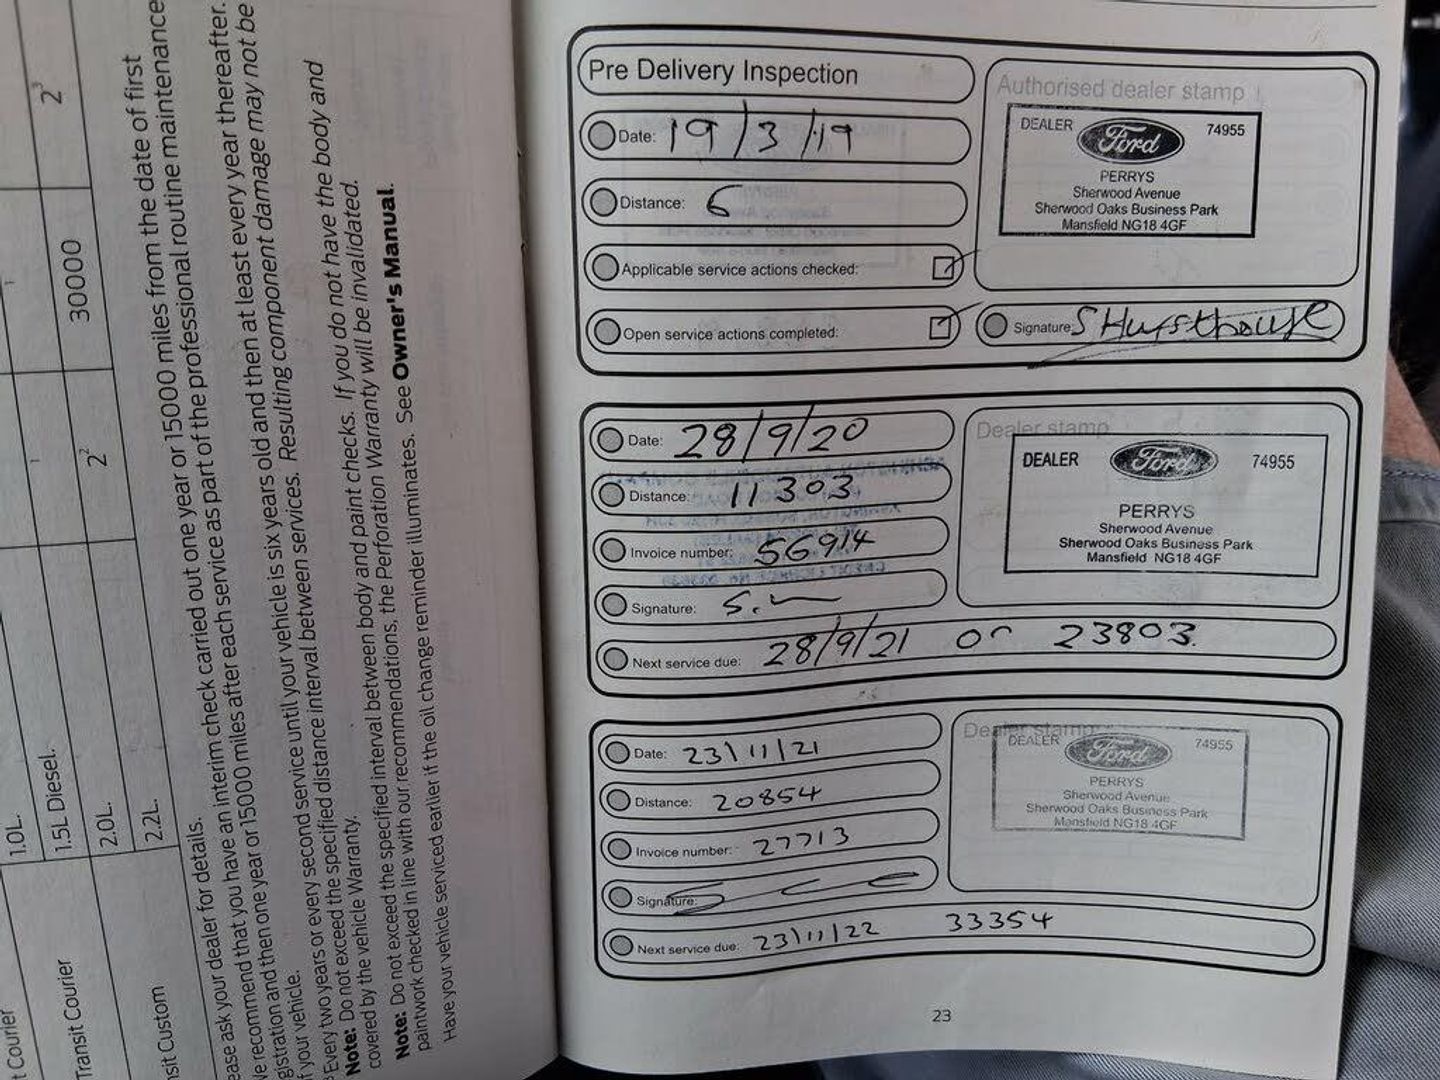 1.0L.
1.5L Diesel.
2.0L.
2.2L.
2³
30000
2²
t Courier
Transit Courier
nsit Custom
ease ask your dealer for details.
We recommend that you have an interim check carried out one year or 15000 miles from the date of first
gistration and then one year or 15000 miles after each service as part of the professional routine maintenance
f your vehicle.
Every two years or every second service until your vehicle is six years old and then at least every year thereafter.
Note: Do not exceed the specified distance interval between services. Resulting component damage may not be
covered by the vehicle Warranty.
Note: Do not exceed the specified interval between body and paint checks. If you do not have the body and
paintwork checked in line with our recommendations, the Perforation Warranty will be invalidated.
Have your vehicle serviced earlier if the oil change reminder illuminates. See Owner's Manual.
Pre Delivery Inspection
Date: 19/3/19
Distance: 6
Applicable service actions checked:
Open service actions completed:
Authorised dealer stamp
DEALER Ford 74955
PERRYS
Sherwood Avenue
Sherwood Oaks Business Park
Mansfield NG18 4GF
Signature: S Hursthouse
Date: 28/9/20
Distance: 11303
Invoice number: 56914
Signature:
Next service due: 28/9/21 or 23803.
Dealer stamp
DEALER Ford 74955
PERRYS
Sherwood Avenue
Sherwood Oaks Business Park
Mansfield NG18 4GF
Date: 23/11/21
Distance: 20854
Invoice number: 27713
Signature:
Next service due: 23/11/22 33354
Dealer stamp
DEALER Ford 74955
PERRYS
Sherwood Avenue
Sherwood Oaks Business Park
Mansfield NG18 4GF
23